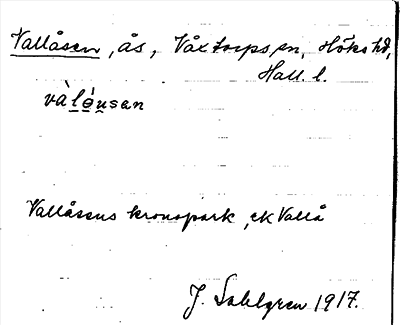 Vallåsen, ås, Våxtorps sn, Höks hd,
Hall. l.
Vallåsens kronopark, ek Vallå
J. Sahlgren 1917.